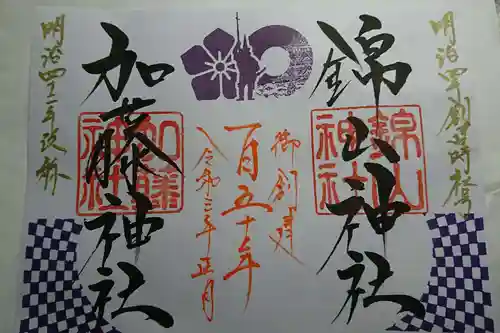 明治四年創建時称
錦山神社
錦山神社
御創建
百五十年
令和三年正月
加藤神社
加藤神社
明治四二年改称